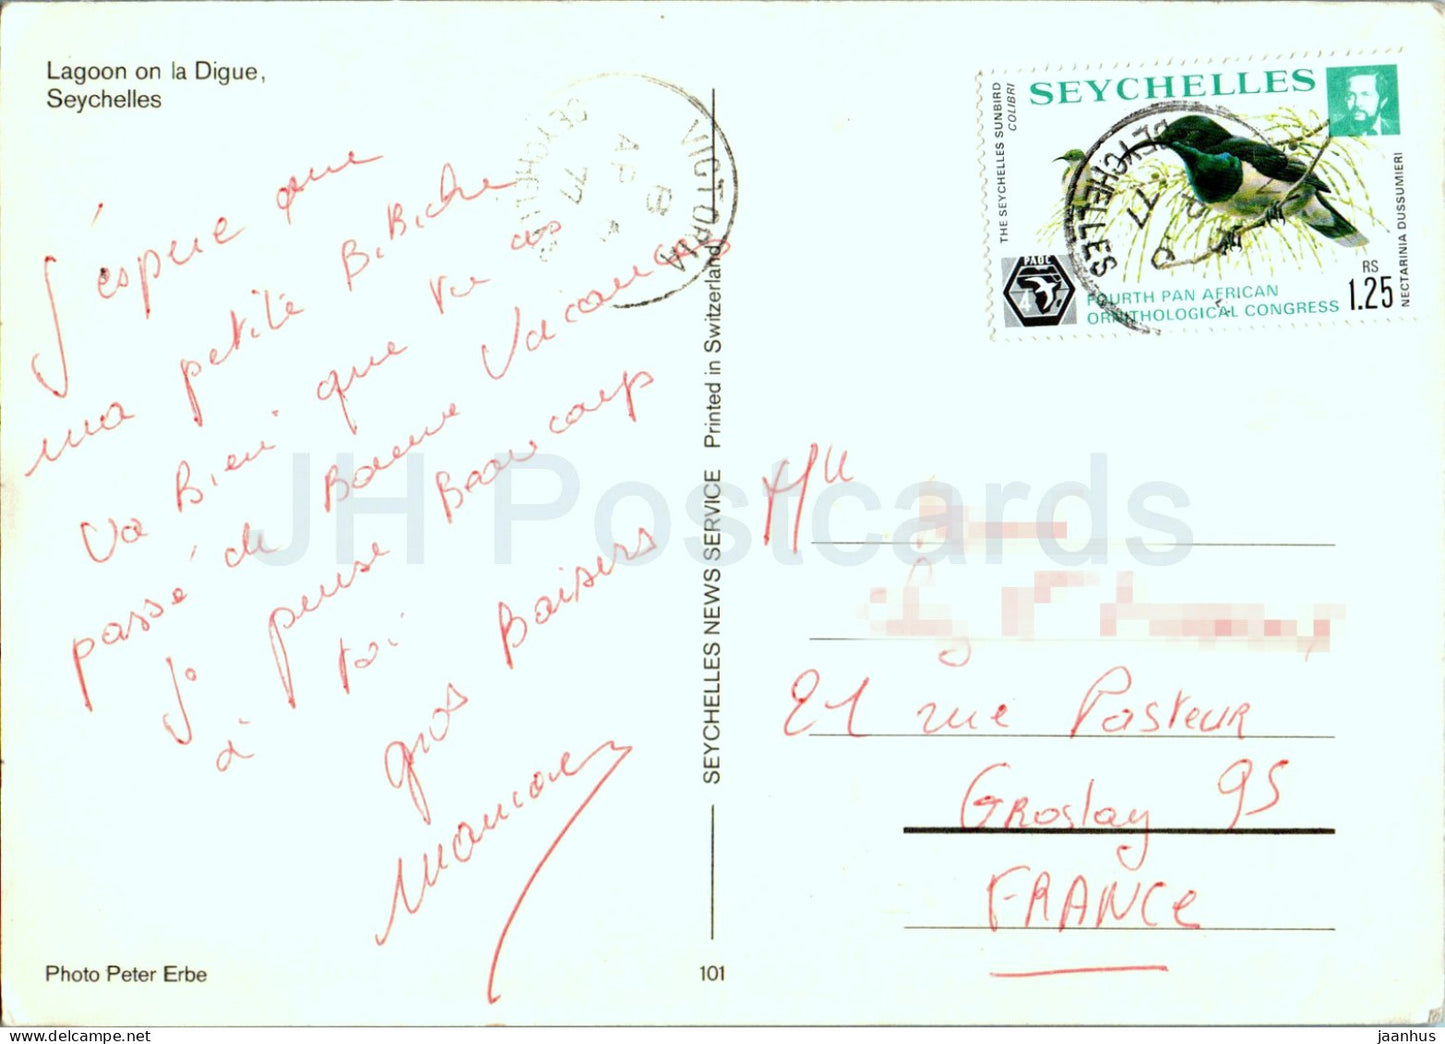 Lagoon on la Digue,
Seychelles
J'espere que
ma petite BiBiche
va Bien que tu as
passé de Bonne Vacances
Je pense Beaucoup
à toi
gros Baisers
Photo Peter Erbe
SEYCHELLES NEWS SERVICE Printed in Switzerland
101
VICTORIA
SEYCHELLES
AP
77
SEYCHELLES
THE SEYCHELLES SUNBIRD
COLIBRI
NECTARINIA DUSSUMIERI
PAOC
4
FOURTH PAN AFRICAN
ORNITHOLOGICAL CONGRESS
RS
1.25
SEYCHELLES
77
21 rue Pasteur
Groslay 95
FRANCE
JH Postcards
delcampe.net
jaanhus